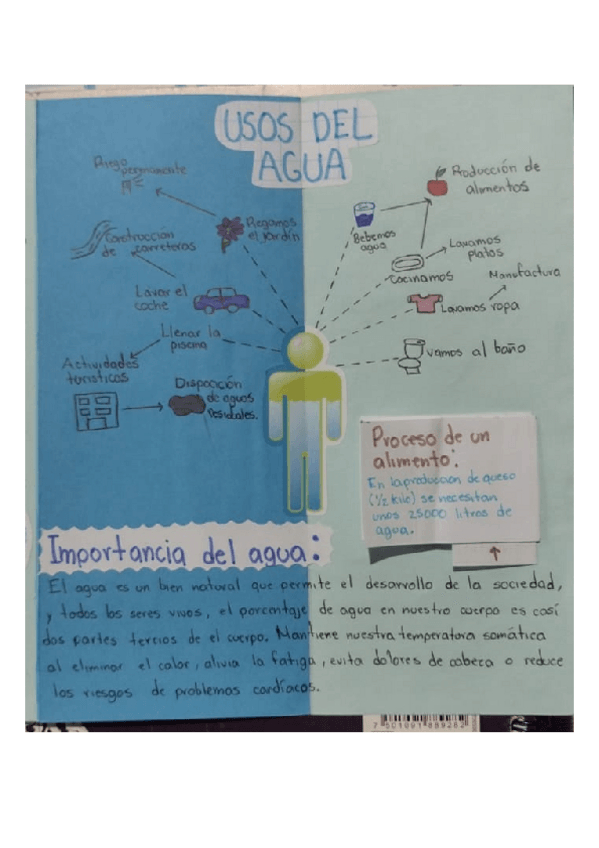 USOS DEL
AGUA
Riego
permanente
Regamos
el jardín
Construcción
de carreteras
Lavar el
coche
Llenar la
piscina
Actividades
turísticas
Disposición
de aguas
residuales.
Producción de
alimentos
Bebemos
agua
Lavamos
platos
Cocinamos
Manufactura
Lavamos ropa
vamos al baño
Proceso de un
alimento:
En la producción de queso
(1/2 kilo) se necesitan
unos 25000 litros de
agua.
Importancia del agua:
El agua es un bien natural que permite el desarrollo de la sociedad,
y todos los seres vivos, el porcentaje de agua en nuestro cuerpo es casí
dos partes tercios de el cuerpo. Mantiene nuestra temperatura somática
al eliminar el calor, alivia la fatiga, evita dolores de cabeza o reduce
los riesgos de problemas cardíacos.
7 501091 889262